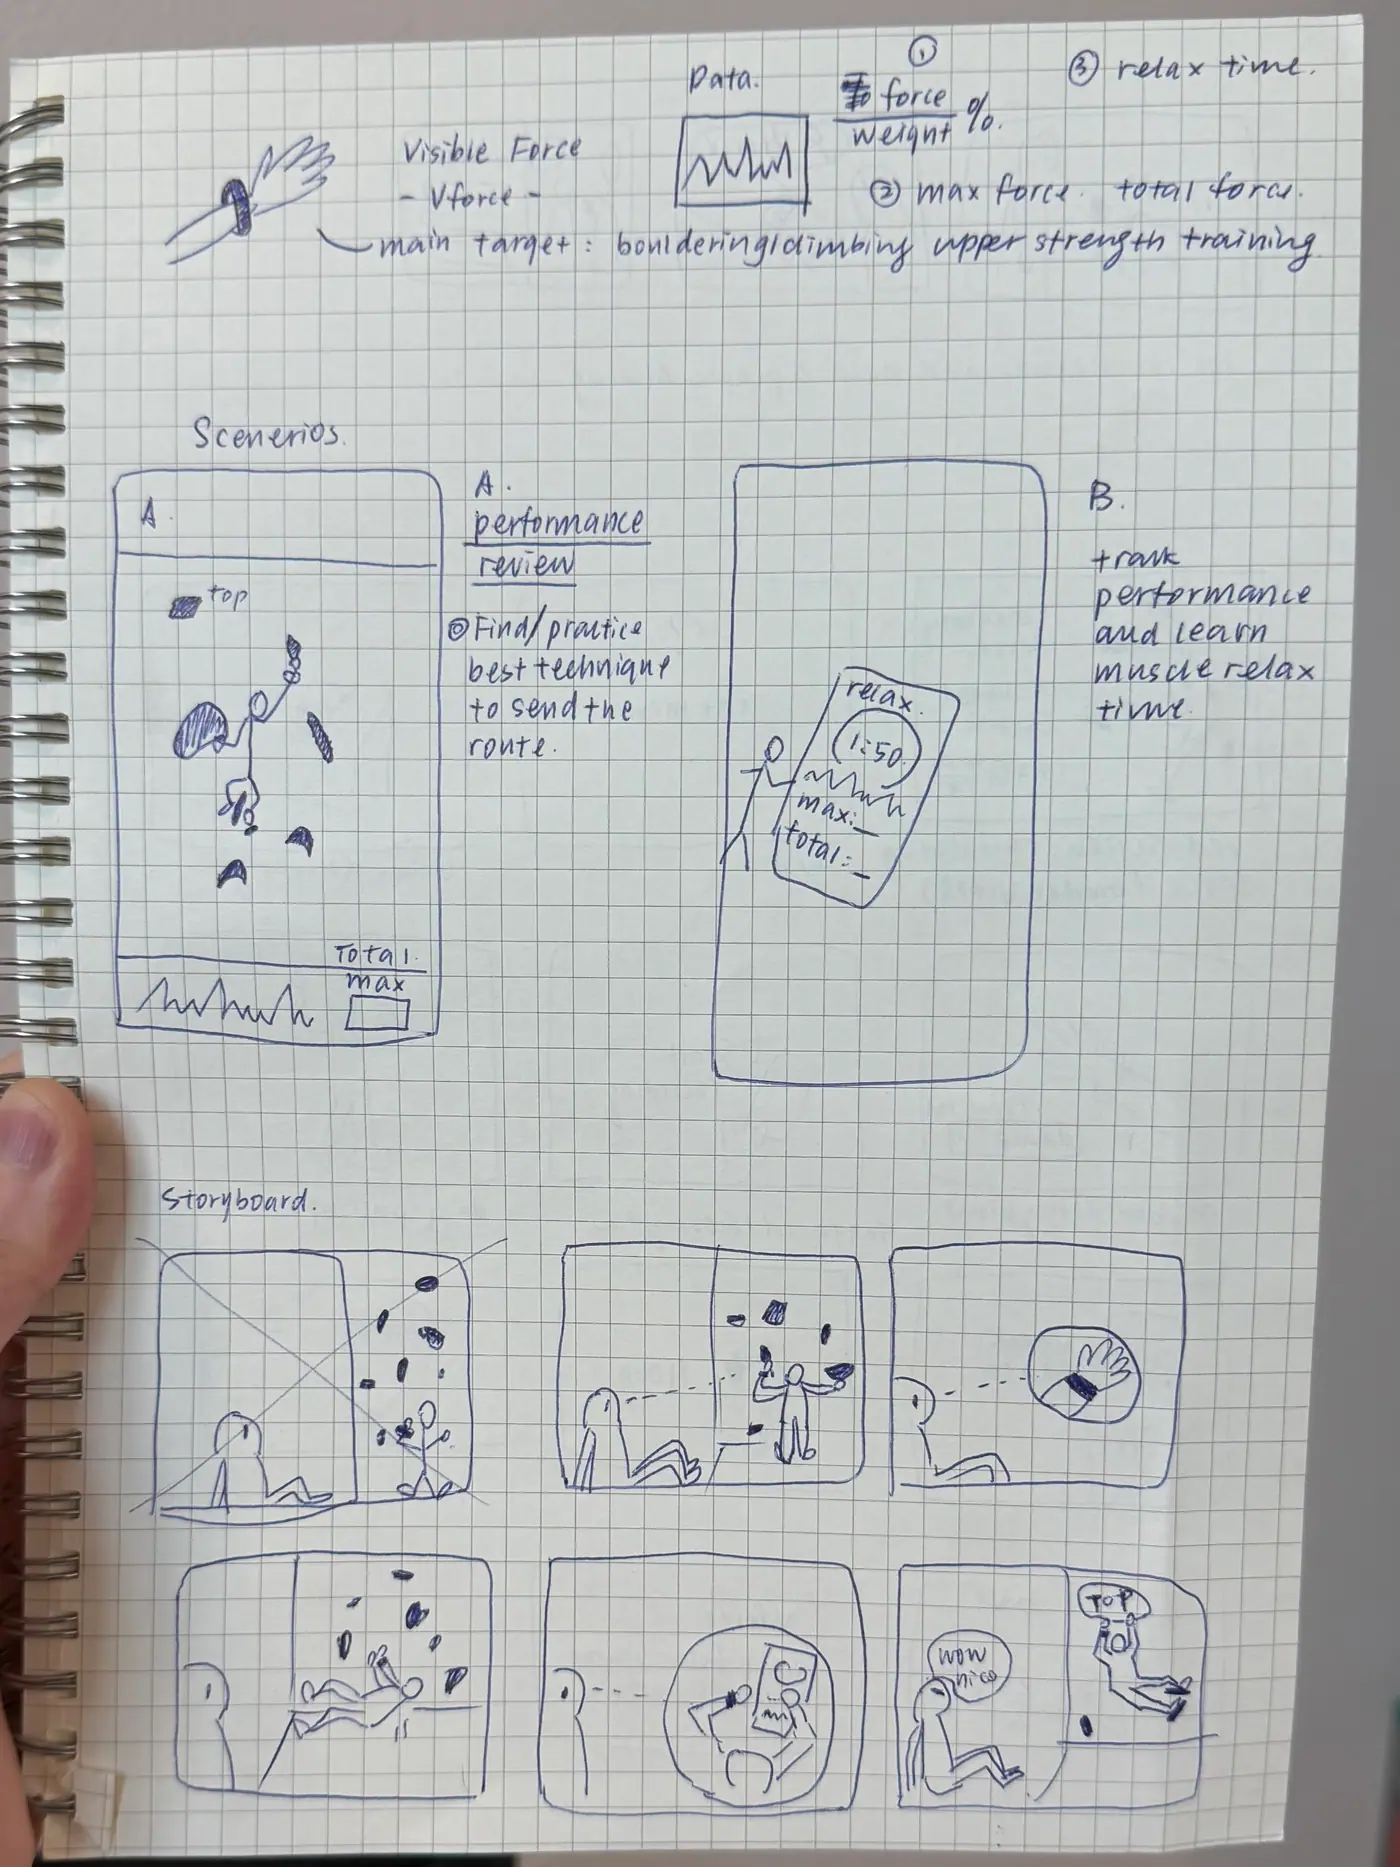 Data.
①
force
weight %.
③ relax time.
Visible Force
- Vforce -
② max force. total force.
main target: bouldering/climbing upper strength training
Scenerios.
A.
top
Total.
max
A.
performance
review
Find/practice
best technique
to send the
route.
relax.
1:50.
max:_
total:_
B.
track
performance
and learn
muscle relax
time.
Storyboard.
wow
nice
TOP